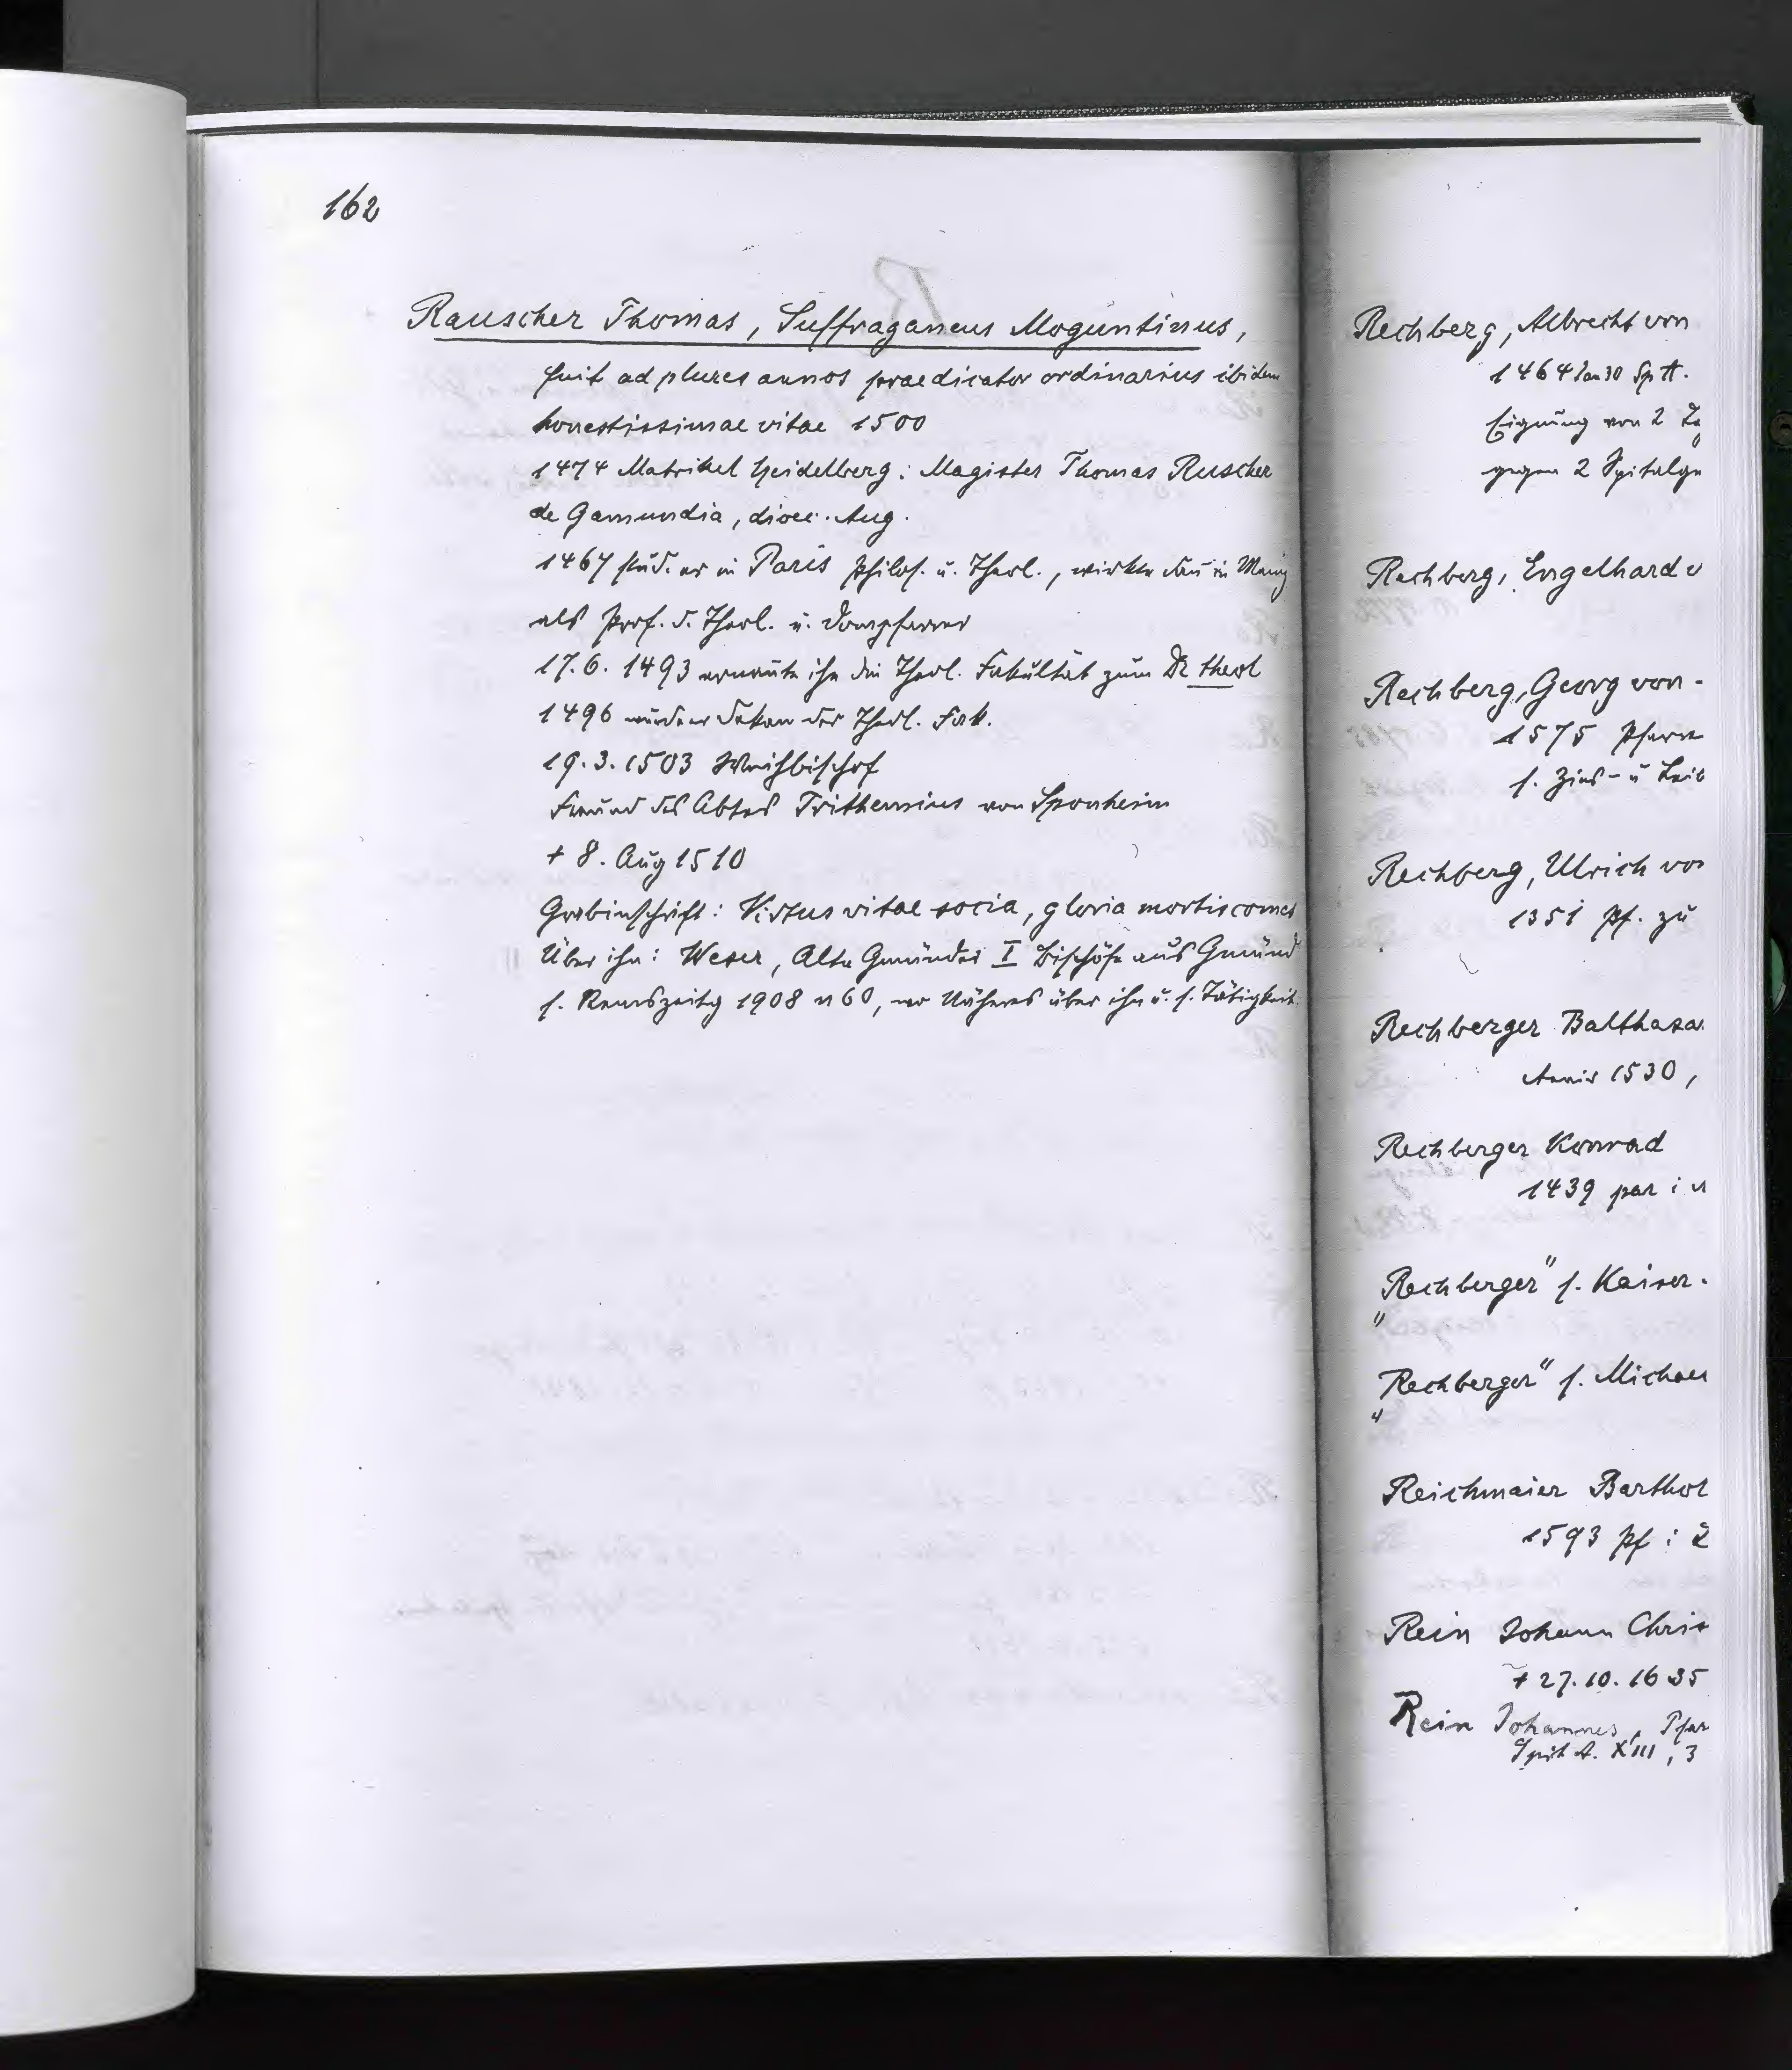 162
Rauscher Thomas, Suffraganeus Moguntinus,
fuit ad plures annos praedicator ordinarius ibidem
honestissimae vitae 1500
1474 Matrikel Heidelberg: Magister Thomas Ruscher
de Gamundia, dioec. Aug.
1467 stud. er in Paris Philos. u. Theol., wirkte dan in Mainz
als Prof. d. Theol. u. Dompfarrer
17.6.1493 ernannte ihn die Theol. Fakultät zum Dr theol
1496 wurde er Dekan der Theol. Fak.
19.3.1503 Weihbischof
Freund des Abtes Trithemius von Sponheim
+ 8. Aug 1510
Grabinschrift: Virtus vitae socia, gloria mortis comes
Über ihn: Weser, Alte Gmünder I Bischöfe aus Gmünd
s. Remszeitg 1908 n 60, wo Näheres über ihn u. s. Tätigkeit.
Rechberg, Albrecht von
1464 Jan 30 Sp A.
Eignung von 2
gegen 2 Spitalgü
Rechberg, Engelhard v
Rechberg, Georg von -
1575 Pfarre
s. Zins- u Leib
Rechberg, Ulrich von
1351 Pf. zu
Rechberger Balthasa
1530,
Rechberger Konrad
1439 par i
"Rechberger" s. Kaiser.
"Rechberger" s. Michae
Reichmaier Barthol
1593 Pf i
Rein Johann Chris
+ 27.10.1635
Rein Johannes, Pfar
Spit A. XIII, 3